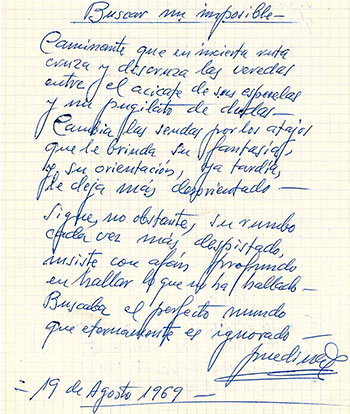 Buscar un imposible —
Caminante que en incierta ruta
cruza y descruza las veredas
entre el acicate de sus espuelas
y un pugilato de dudas —
Cambia las sendas por los atajos
que le brinda su fantasía,
y su orientación, ya tardía,
le deja más desorientado —
Sigue, no obstante, su rumbo
cada vez más despistado,
insiste con afán profundo
en hallar lo que no ha hallado —
Buscaba el perfecto mundo
que eternamente es ignorado —
= 19 de Agosto 1969 =